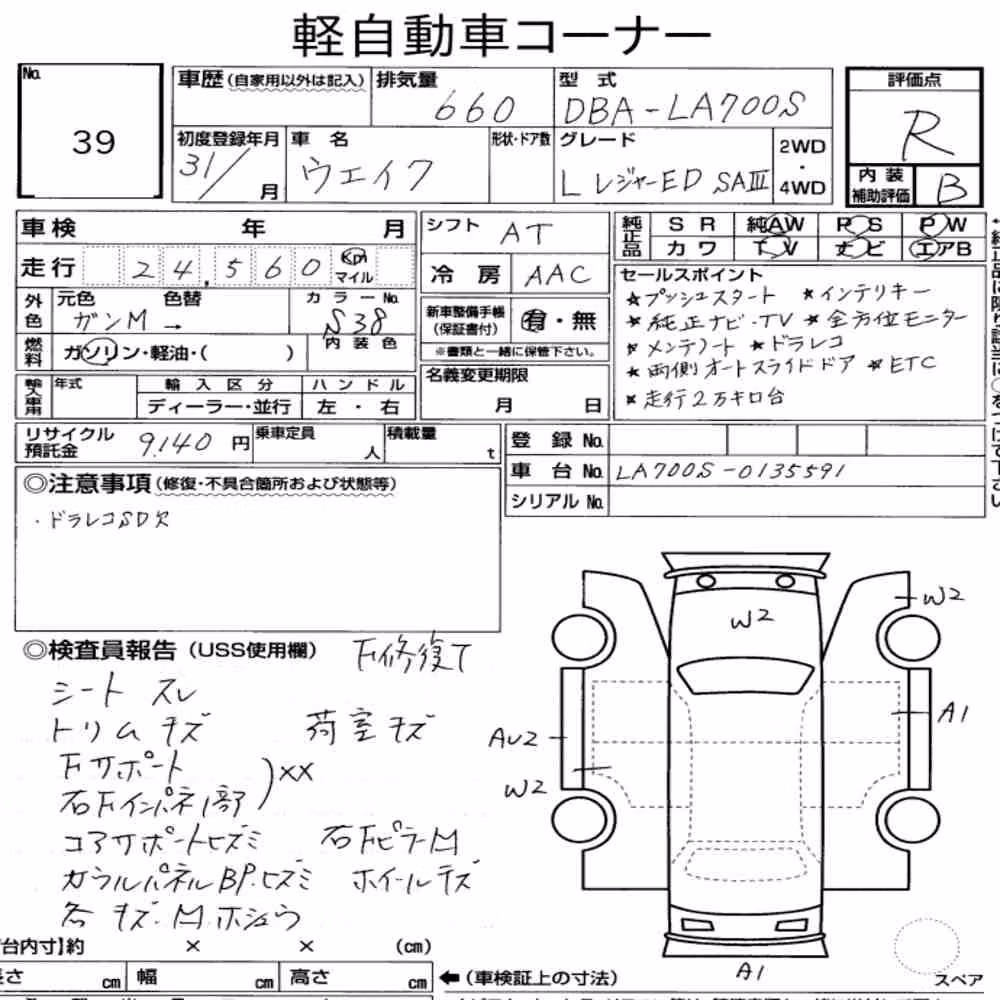 軽自動車コーナー
No. 39
車歴(自家用以外は記入) 排気量 660 型式 DBA-LA700S
評価点 R
初度登録年月 31/ 月 車名 ウエイク 形状・ドア数 グレード L レジャーED SAⅢ 2WD・4WD
内装補助評価 B
車検 年 月
走行 24,560 Km マイル
外色 元色 ガンM → 色替 カラーNo. S38 内装色
燃料 ガソリン・軽油・( )
輸入車用 年式 輸入区分 ディーラー・並行 ハンドル 左・右
リサイクル預託金 9,140 円 乗車定員 人 積載量 t
シフト AT
冷房 AAC
新車整備手帳(保証書付) 有・無
※書類と一緒に保管下さい。
名義変更期限 月 日
純正品 SR 純AW PS PW
カワ TV ナビ エアB
セールスポイント
★プッシュスタート ★インテリキー
★純正ナビ・TV ★全方位モニター
★メンテノート ★ドラレコ
★両側オートスライドドア ★ETC
★走行2万キロ台
登録No.
車台No. LA700S-0135591
シリアルNo.
◎注意事項(修復・不具合箇所および状態等)
・ドラレコSD欠
◎検査員報告(USS使用欄) F修復て
シート スレ
トリム キズ 荷室キズ
Fサポート
右Fインパネ1部 )××
コアサポートヒズミ 右FピラーM
カウルパネルBP.ヒズミ ホイールキズ
各 キズ.M.ホシュウ
W2
W2
A1
AU2
W2
A1
スペア
台内寸】約 × × (cm)
長さ cm 幅 cm 高さ cm ←(車検証上の寸法)